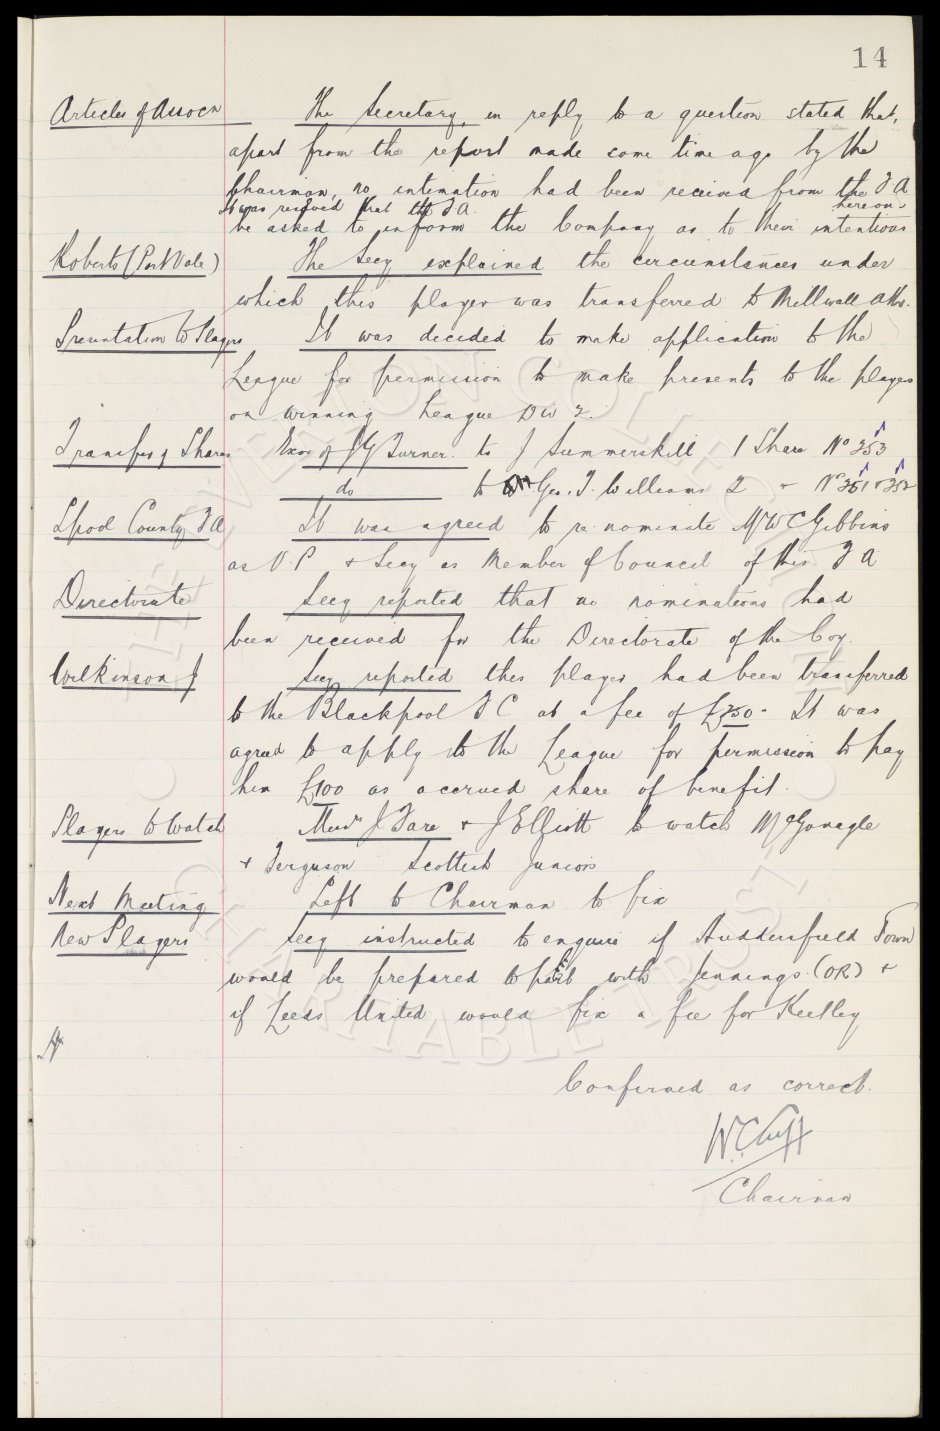 14
Articles of Assocn The Secretary, in reply to a question stated that,
apart from the report made some time ago by the
Chairman, no intimation had been received from the F.A.
It was resolved that the F.A. hereon.
be asked to inform the Company as to their intentions
Roberts (Port Vale) The Secy explained the circumstances under
which this player was transferred to Millwall Ath.
Presentation to Players It was decided to make application to the
League for permission to make presents to the players
on winning League Div 2.
Transfer of Shares Exors of J G Turner. to J Summerskill 1 Share No 353
do to Geo. T. Williams 2 " No 351 & 352
Lpool County FA It was agreed to re-nominate Mr W C Gibbins
as V.P & Secy as Member of Council of this F A
Directorate Secy reported that no nominations had
been received for the Directorate of the Coy.
Wilkinson J Secy reported this player had been transferred
to the Blackpool F C at a fee of £750- It was
agreed to apply to the League for permission to pay
him £100 as accrued share of benefit.
Players to Watch Messrs J Fare & J Elliott to watch McGonagle
& Ferguson Scottish Juniors
Next Meeting Left to Chairman to fix
New Players Secy instructed to enquire if Huddersfield Town
would be prepared to part with Jennings (OR) &
if Leeds United would fix a fee for Keetley
Confirmed as correct.
W.C. Cuff
Chairman
THE EVERTON COLLECTION
CHARITABLE TRUST